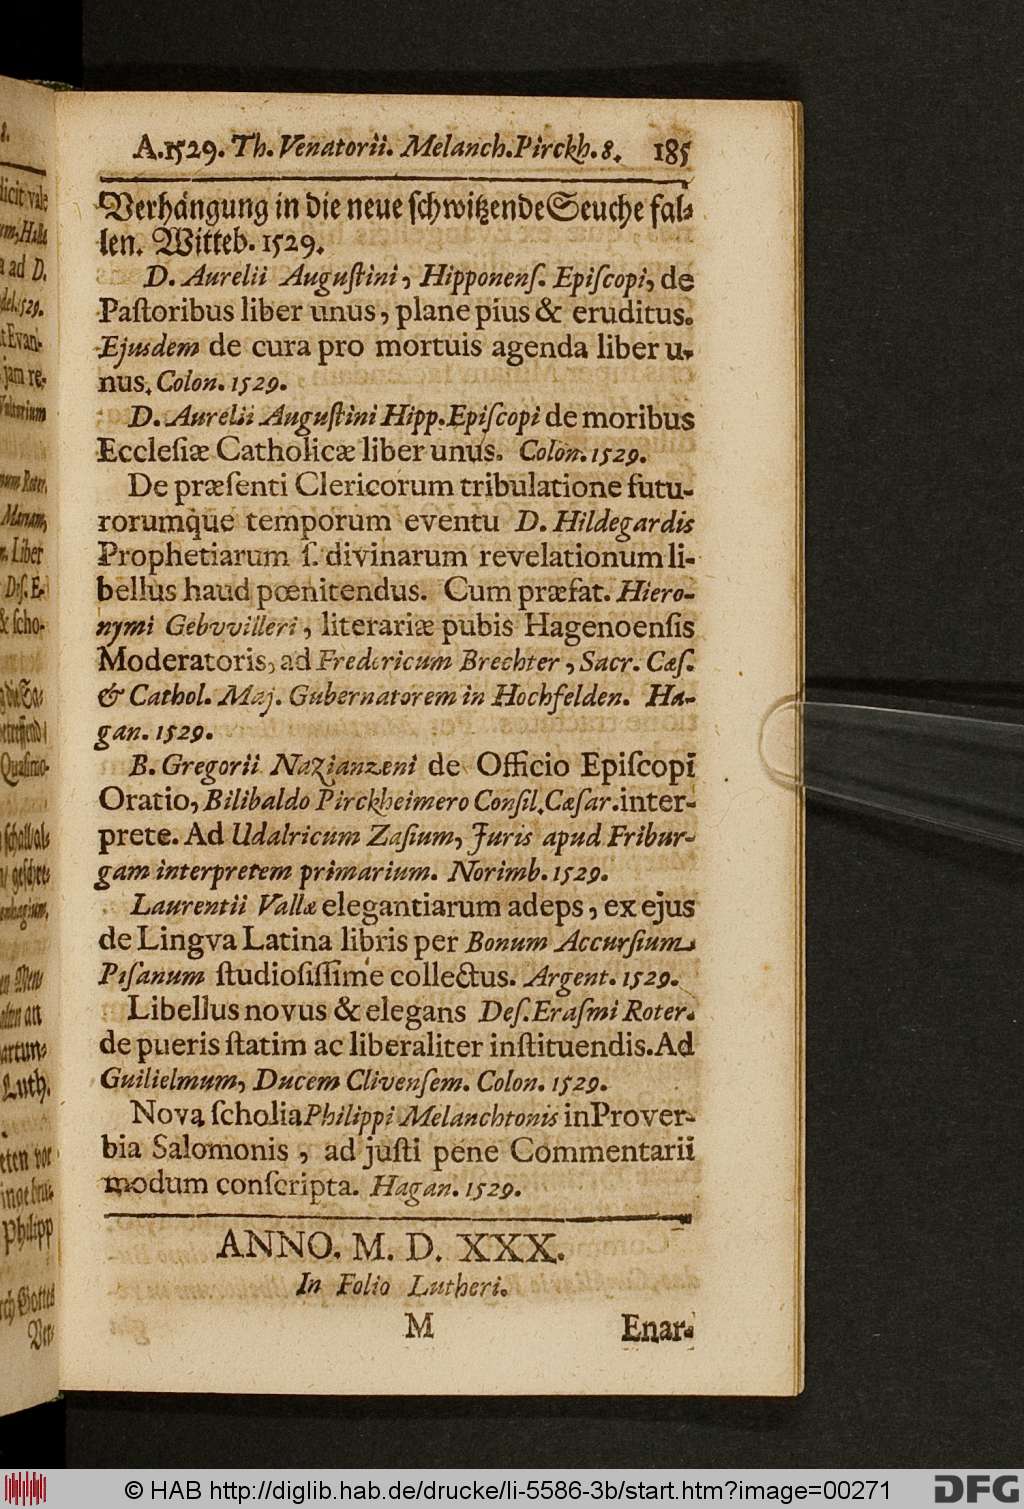 A.1529. Th. Venatorii. Melanch. Pirckh. 8. 185
Verhängung in die neue schwitzende Seuche fal-
len. Witteb. 1529.
D. Aurelii Augustini, Hipponenſ. Epiſcopi, de
Paſtoribus liber unus, plane pius & eruditus.
Ejusdem de cura pro mortuis agenda liber u-
nus. Colon. 1529.
D. Aurelii Auguſtini Hipp. Epiſcopi de moribus
Eccleſiæ Catholicæ liber unus. Colon. 1529.
De præſenti Clericorum tribulatione futu-
rorumque temporum eventu D. Hildegardis
Prophetiarum ſ. divinarum revelationum li-
bellus haud pœnitendus. Cum præfat. Hiero-
nymi Gebvvilleri, literariæ pubis Hagenoenſis
Moderatoris, ad Fredericum Brechter, Sacr. Cæſ.
& Cathol. Maj. Gubernatorem in Hochfelden. Ha-
gan. 1529.
B. Gregorii Nazianzeni de Officio Epiſcopi
Oratio, Bilibaldo Pirckheimero Conſil. Cæſar. inter-
prete. Ad Udalricum Zaſium, Juris apud Fribur-
gam interpretem primarium. Norimb. 1529.
Laurentii Vallæ elegantiarum adeps, ex ejus
de Lingva Latina libris per Bonum Accurſium
Piſanum ſtudioſiſſime collectus. Argent. 1529.
Libellus novus & elegans Deſ. Eraſmi Roter.
de pueris ſtatim ac liberaliter inſtituendis. Ad
Guilielmum, Ducem Clivenſem. Colon. 1529.
Nova ſcholia Philippi Melanchtonis in Prover-
bia Salomonis, ad juſti pene Commentarii
modum conſcripta. Hagan. 1529.
ANNO. M. D. XXX.
In Folio Lutheri.
M Enar-
© HAB http://diglib.hab.de/drucke/li-5586-3b/start.htm?image=00271
DFG